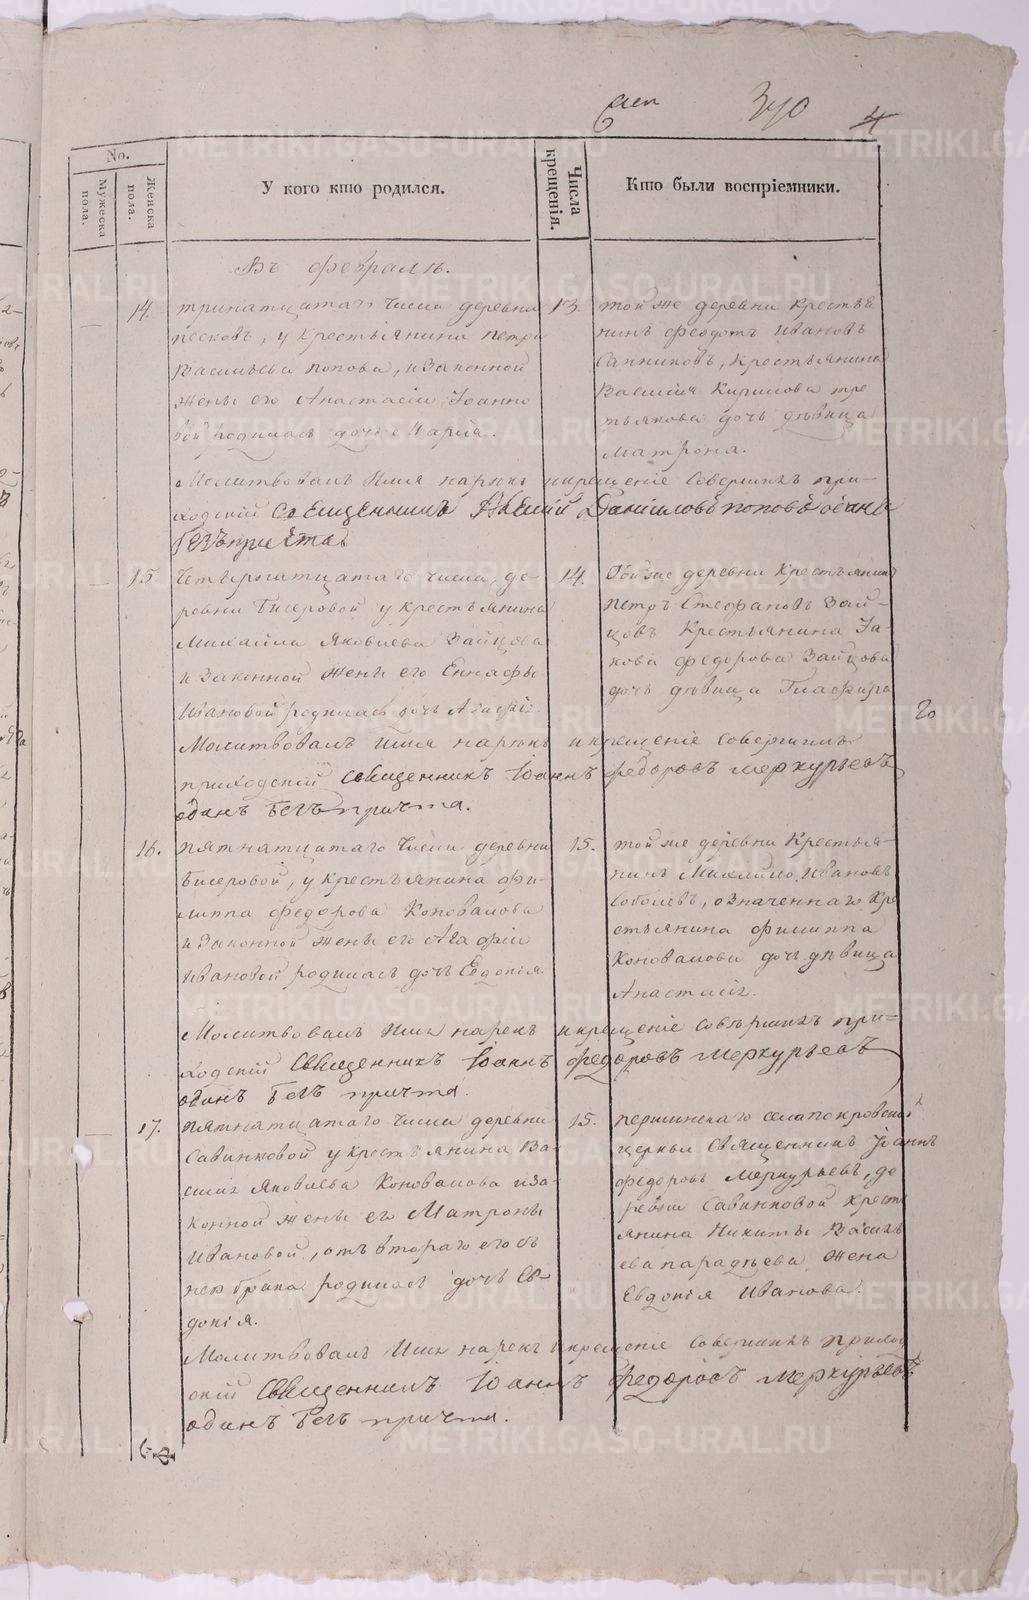 370 4
No.
Мужеска пола.
Женска пола.
У кого кто родился.
Числа крещенія.
Кто были воспріемники.
Въ февралѣ.
14. тринатцатаго числа деревни
песковъ, у крестьянина петра
Васильева попова, и законной
жены его Анастасіи Іоанно
вой родилась дочь Марія.
13. той же деревни крестья
нинъ феодотъ Ивановъ
Санниковъ, крестьянина
Василія Кирилова тре
тьякова дочь дѣвица
Матрона.
Молитвовалъ Имя нарекъ и крещеніе совершилъ при-
ходскій священникъ Алексій Даниловъ поповъ одинъ
безъ причта
15. Четырнатцатаго числа, де-
ревни Бисеровой у крестьянина
Михаила Яковлева Зайцова
и законной жены его
Ивановой родилась дочь Агафія.
14. той же деревни крестьянинъ
петръ Стефановъ Зай-
цовъ крестьянина Іа-
кова федорова Зайцова
дочь дѣвица Глафира
Молитвовалъ Имя нарекъ и крещеніе совершилъ
приходскій священникъ Іоаннъ федоровъ меркурьевъ
одинъ безъ причта.
16. пятнатцатаго числа деревни
Бисеровой, у крестьянина фи-
липпа федорова Коновалова
и законной жены его Агафіи
Ивановой родилась дочь Евдокія.
15. той же деревни Крестья-
нинъ Михаило Ивановъ
Соболевъ, означеннаго кре
стьянина филиппа
Коновалова дочь дѣвица
Анастасія.
Молитвовалъ Имя нарекъ и крещеніе совершилъ при-
ходскій священникъ Іоаннъ федоровъ меркурьевъ
одинъ безъ причта.
17. пятнатцатаго числа деревни
Савинковой у крестьянина Ва-
силія Яковлева Коновалова и за-
конной жены его Матроны
Ивановой, отъ втораго его съ
нею брака родилась дочь Ев-
докія.
15. першинскаго села покровской
церкви священникъ Іоаннъ
федоровъ Меркурьевъ, де
ревни Савинковой крест
янина Никиты Василь
ева жена
Евдокія Иванова.
Молитвовалъ Имя нарекъ и крещеніе совершилъ приход
скій священникъ Іоаннъ федоровъ меркурьевъ
одинъ безъ причта.
METRIKI.GASO-URAL.RU